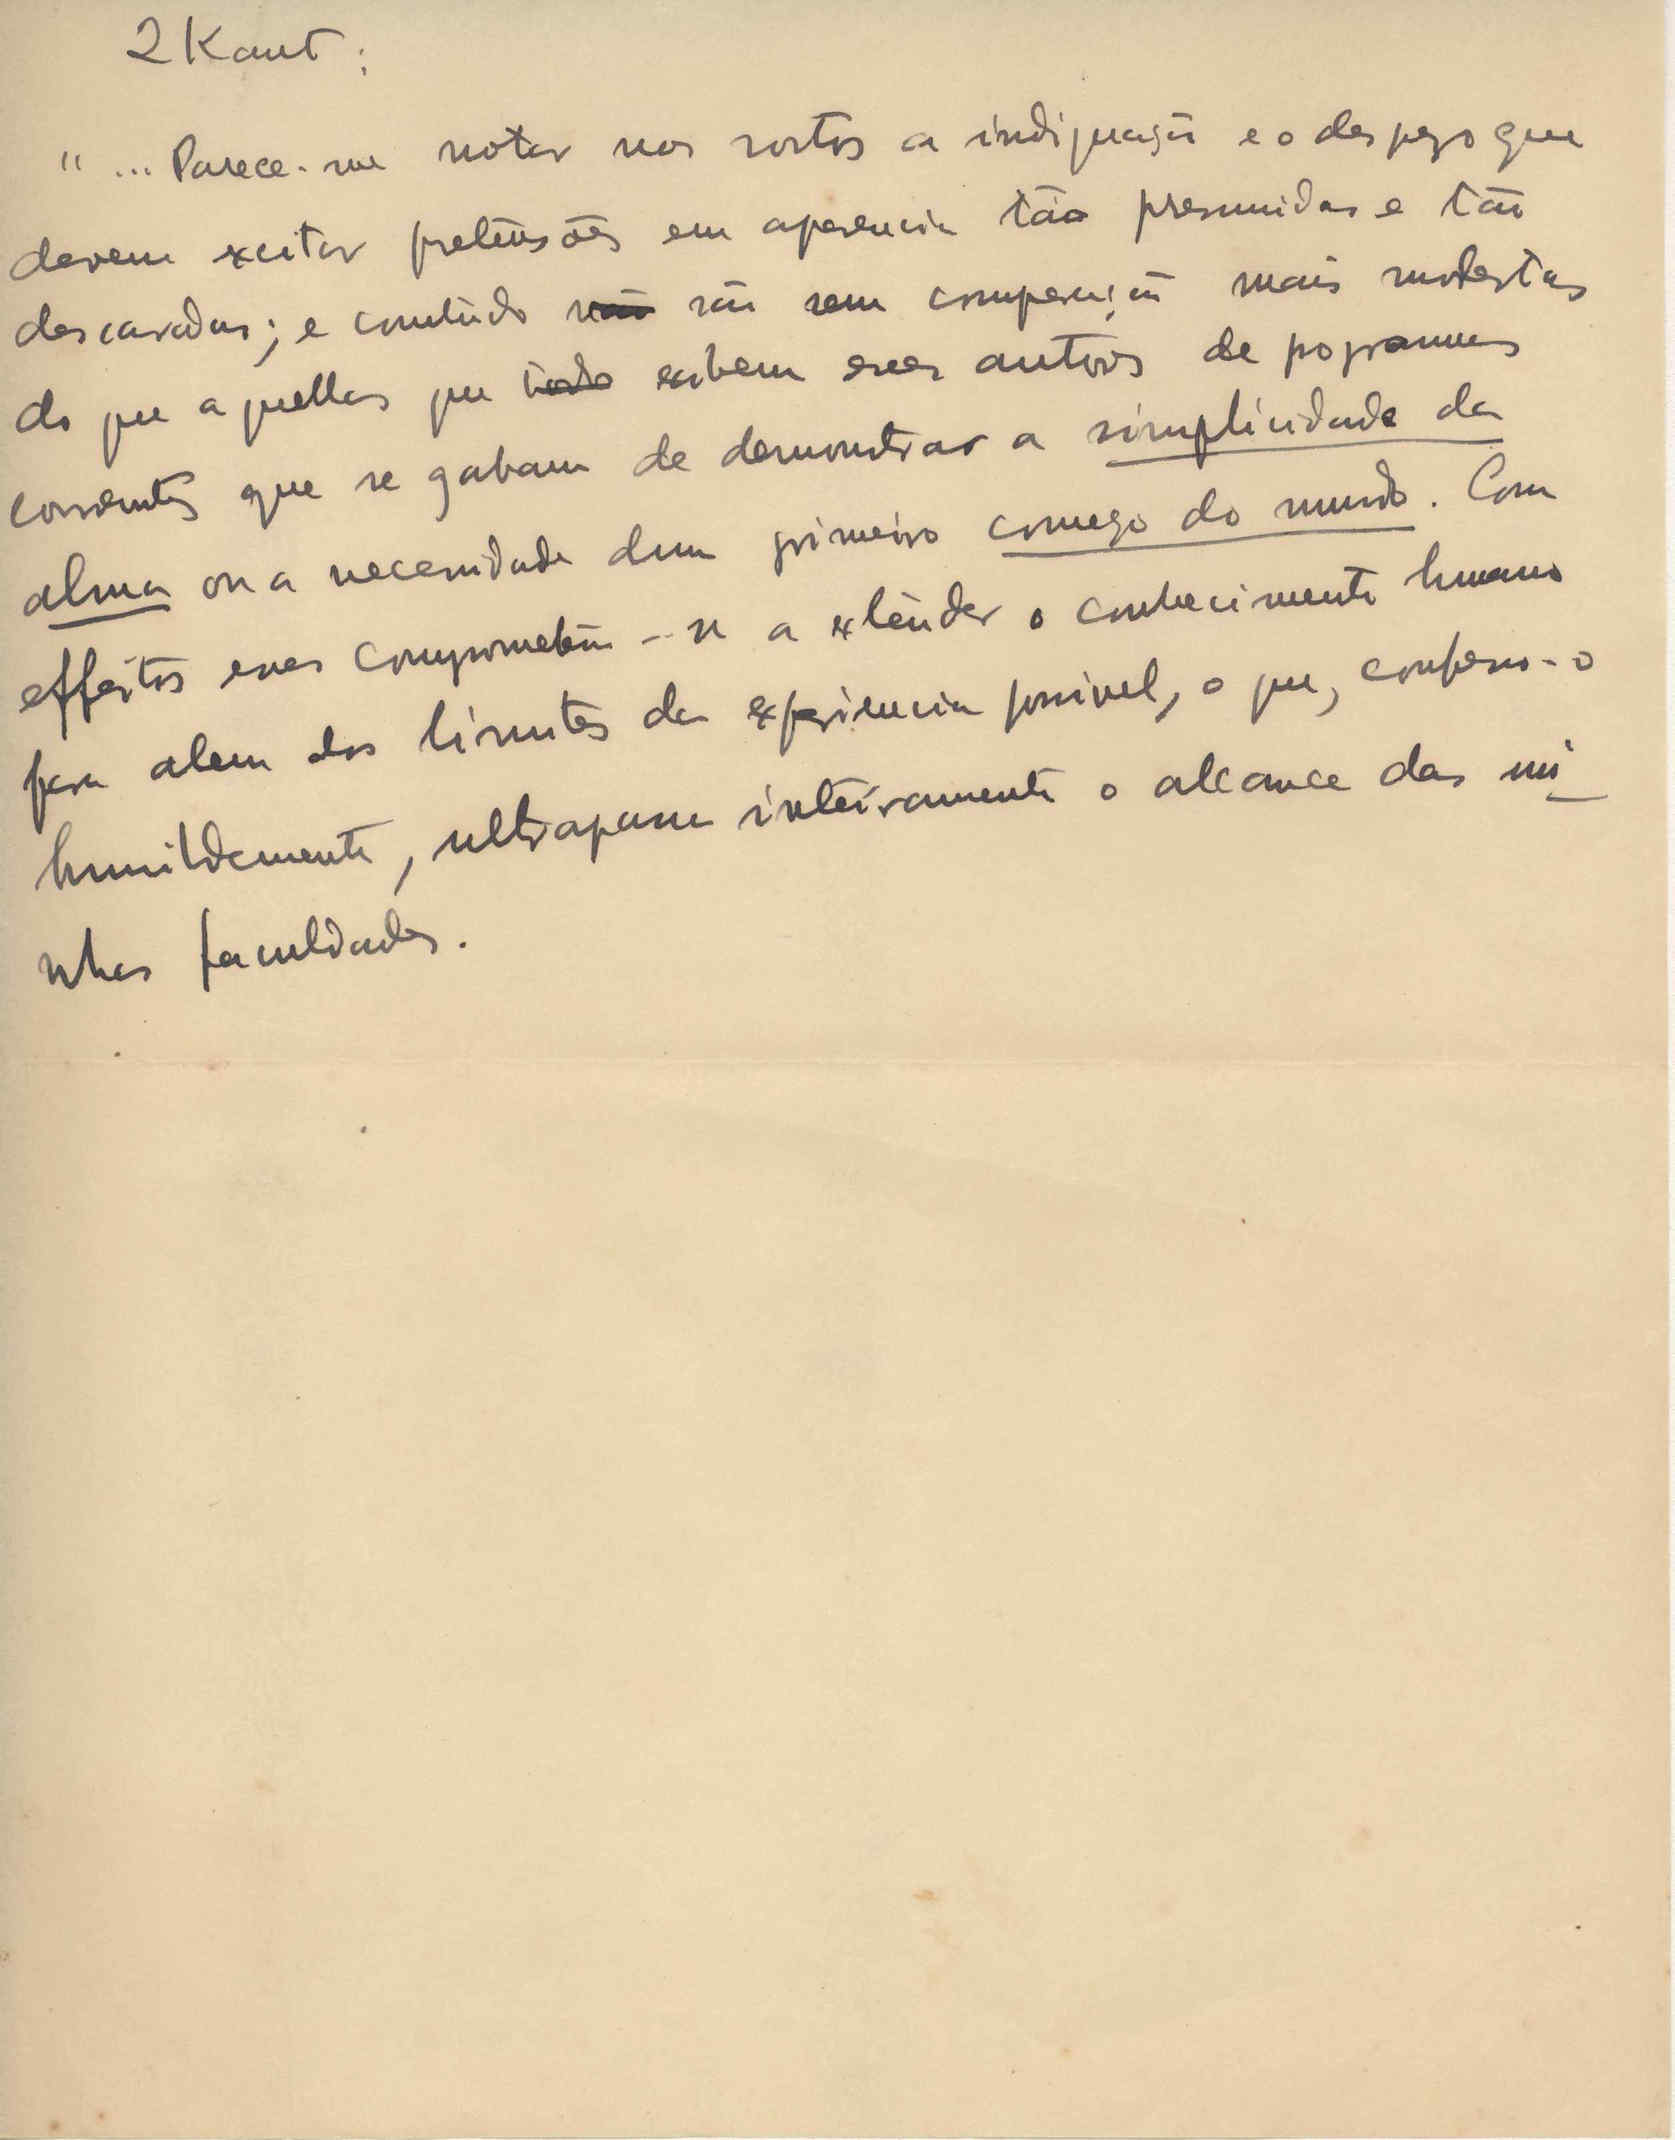 2 Kant:
"... Parece-me notar nos rostos a indignação e o despezo que
devem excitar pretensões em aparencia tão presumidas e tão
descaradas; e comtudo não são sem comparação mais modestas
do que aquellas que todo exibem esses autores de programmas
correntes que se gabam de demonstrar a simplicidade da
alma ou a necessidade dum primeiro começo do mundo. Com
effeitos esses comprometem-se a extender o conhecimento humano
para alem dos limites da experiencia possivel, o que, confesso-o
humildemente, ultrapassa inteiramente o alcance das mi
nhas faculdades.